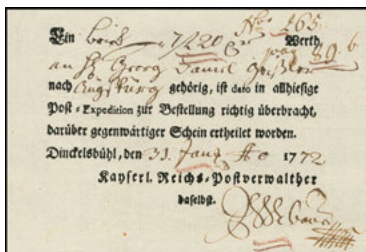 No 165
Ein brief 7/220 Werth
an Hg Georg Daniel
nach Augsburg gehörig, ist dato in allhiesige
Post-Expedition zur Bestellung richtig überbracht,
darüber gegenwärtiger Schein ertheilet worden.
Dinckelsbühl, den 31. Janr Ao 1772
Kayserl. Reichs-Postverwalther
daselbst.